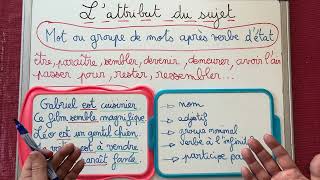 L'attribut du sujet
Mot ou groupe de mots après verbe d'état
être, paraître, sembler, devenir, demeurer, avoir l'air
passer pour, rester, ressembler...
Gabriel est cuisinier.
Ce film semble magnifique.
Léo est un gentil chien.
est à vendre.
paraît
→ nom
→ adjectif
→ groupe nominal
→ verbe à l'infinitif
→ participe pa